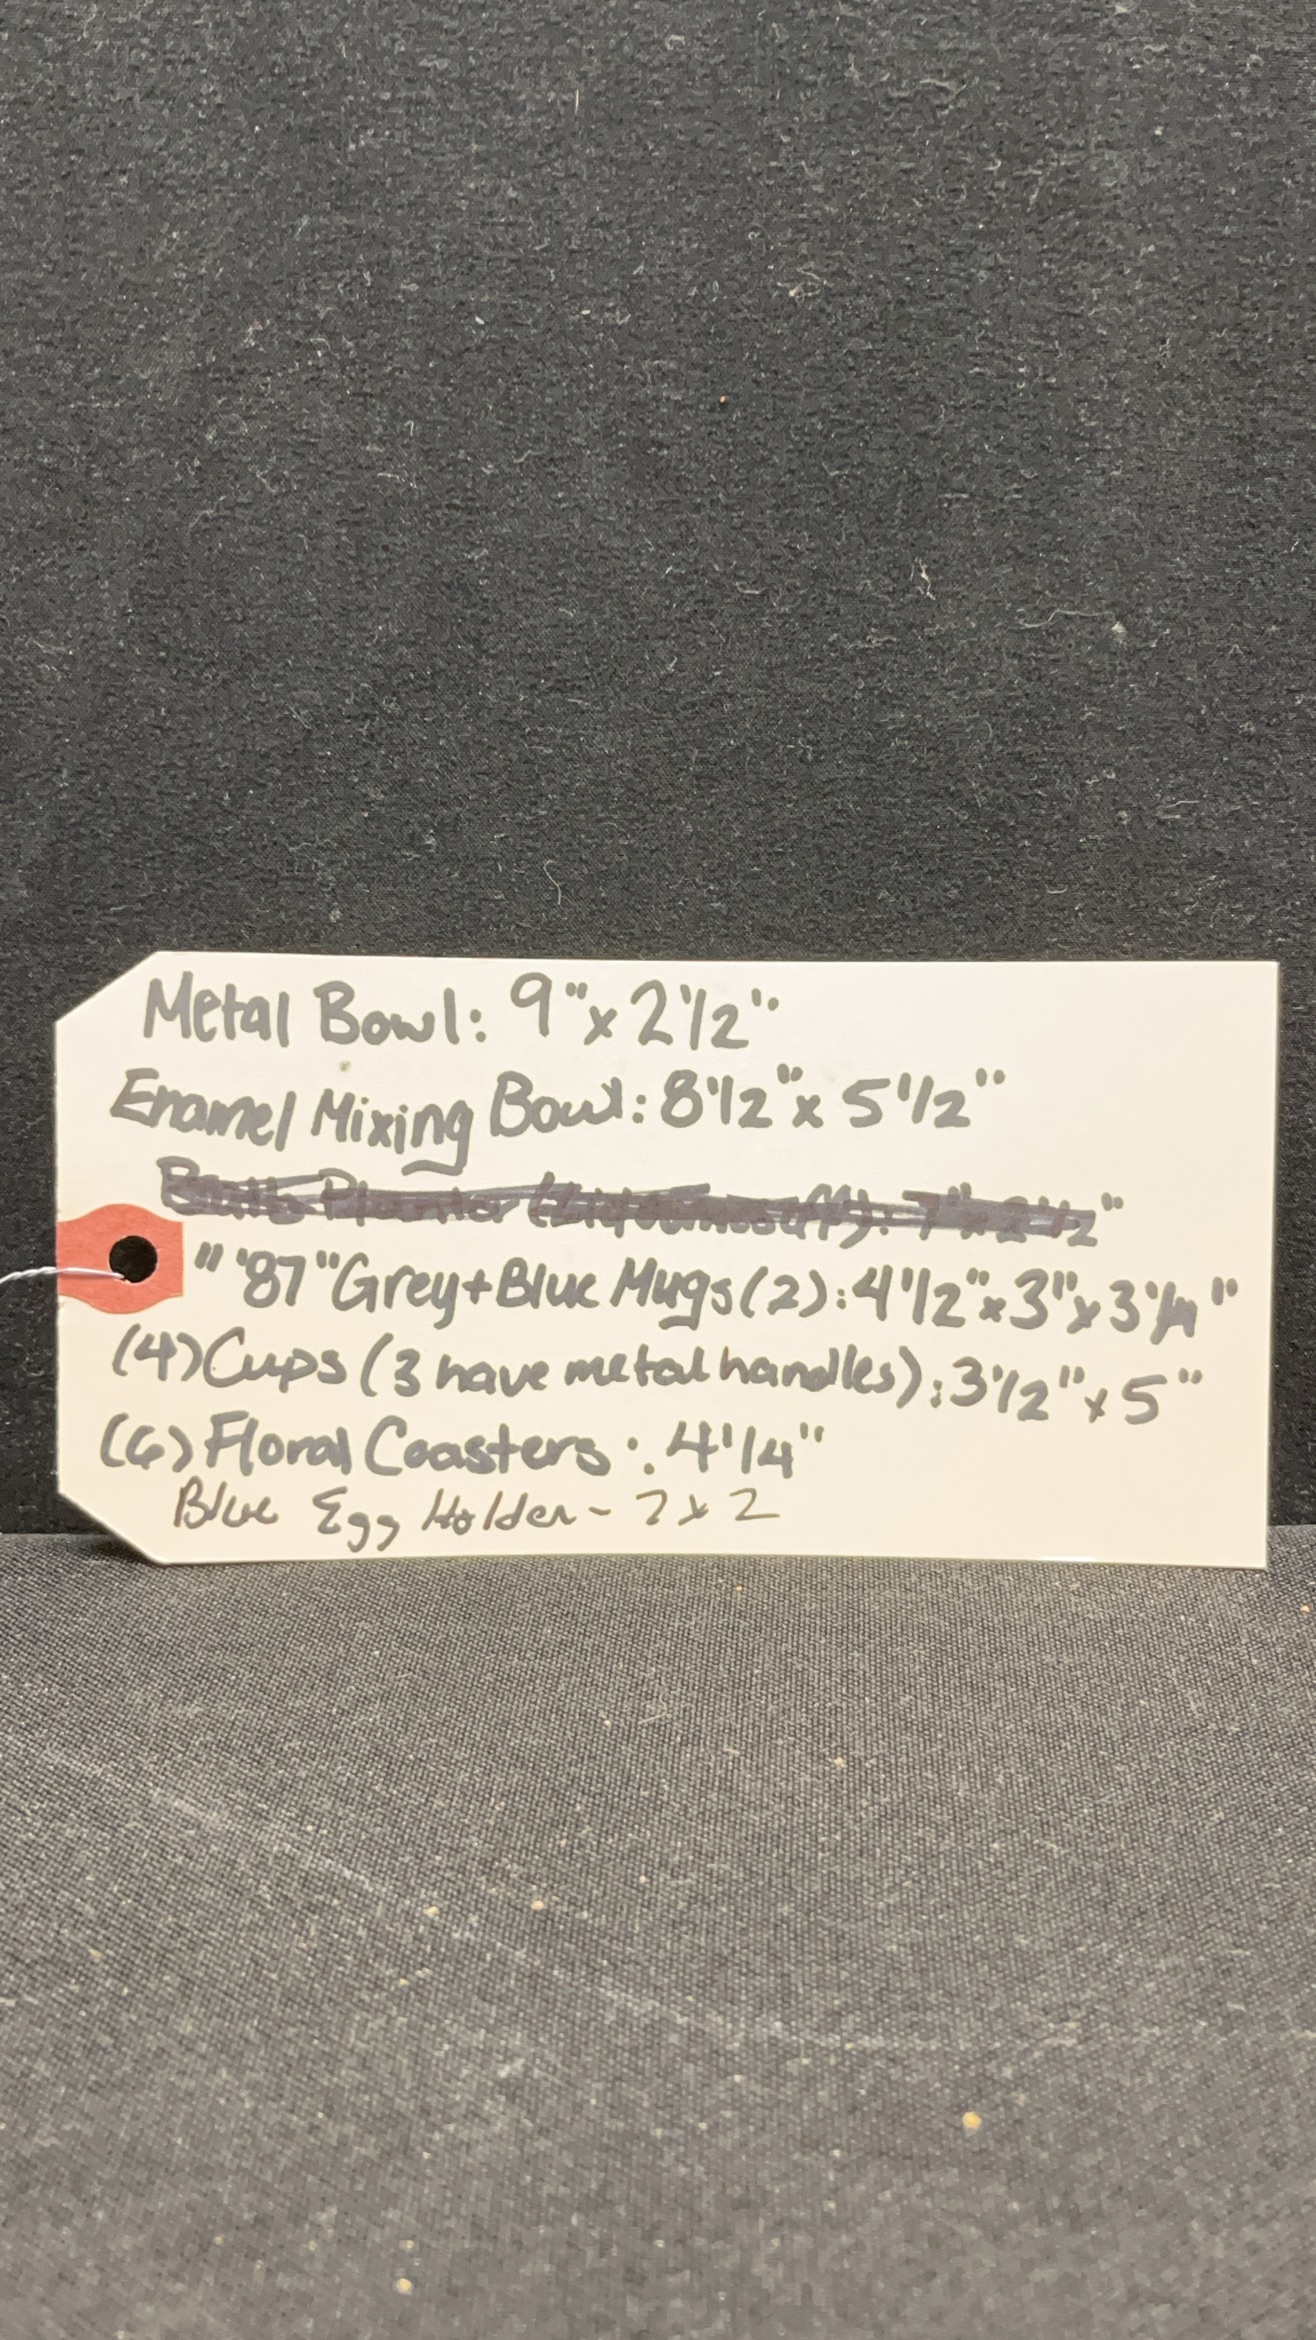 Metal Bowl: 9" x 2 1/2"
Enamel Mixing Bowl: 8 1/2" x 5 1/2"
Planter 7" x 2 1/2"
" '87" Grey + Blue Mugs (2): 4 1/2" x 3" x 3 1/4"
(4) Cups (3 have metal handles): 3 1/2" x 5"
(6) Floral Coasters: 4 1/4"
Blue Egg Holder - 2 x 2